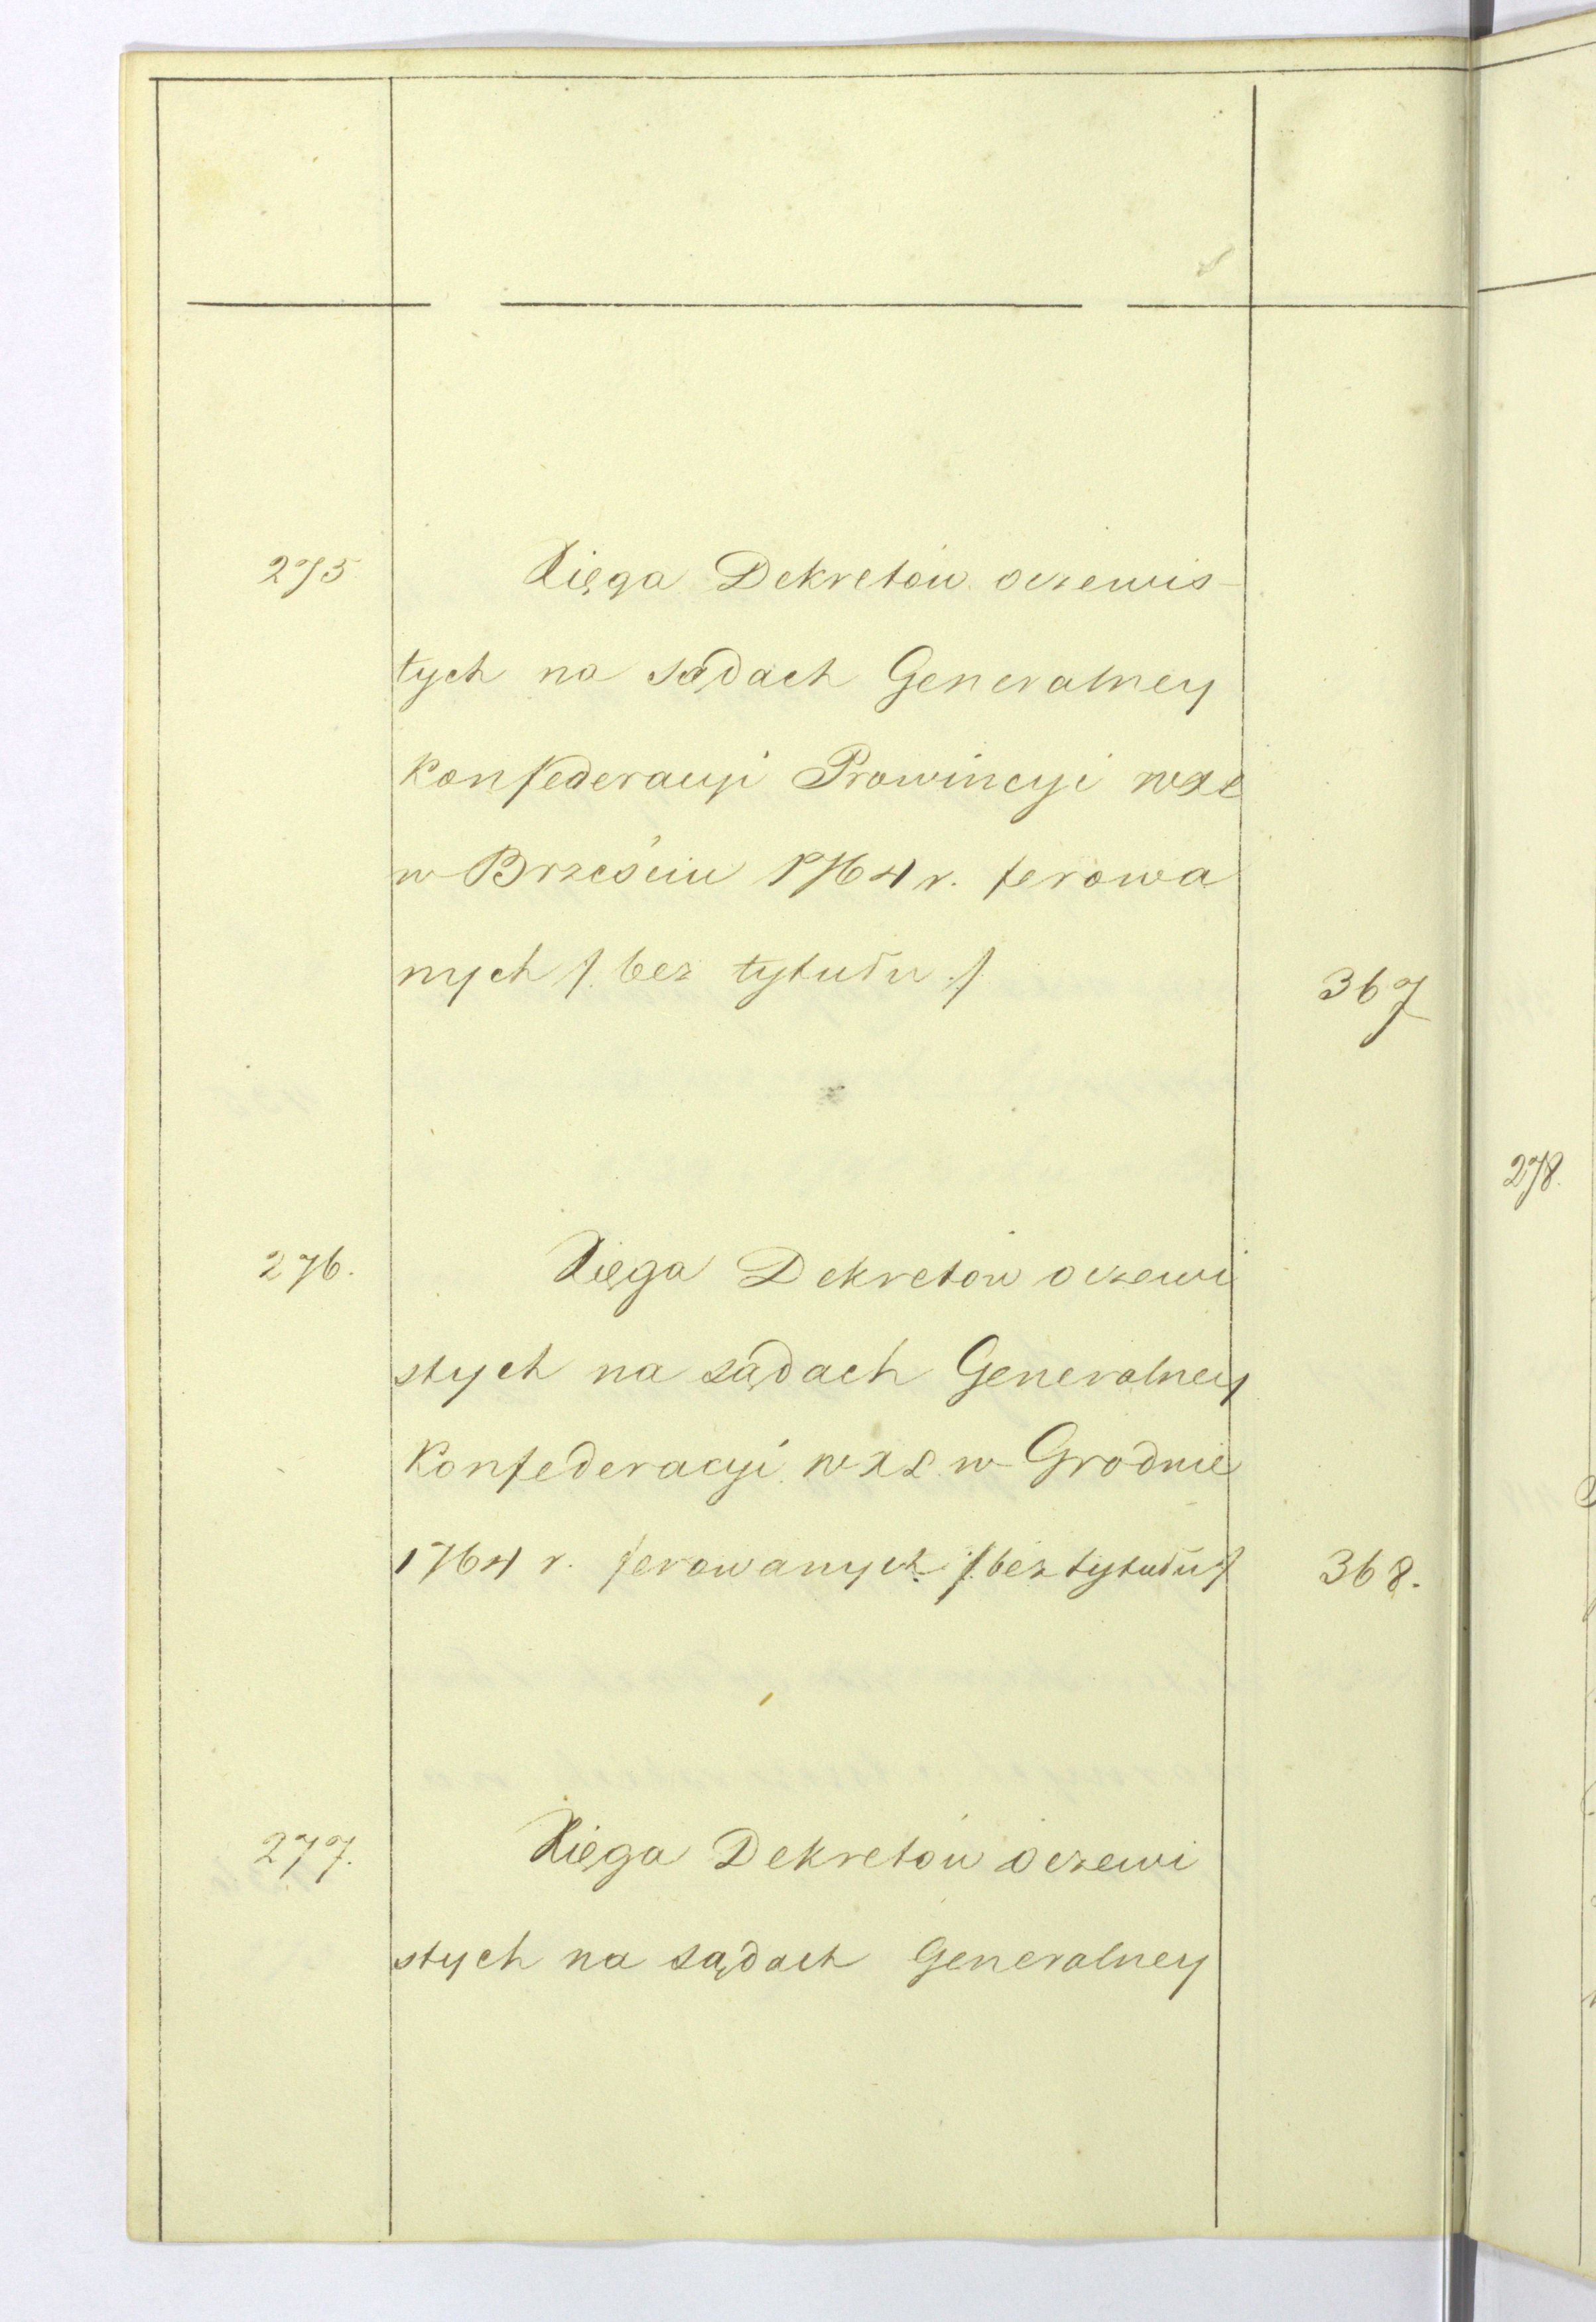 275. Xięga Dekretów oczewis-
tych na sądach Generalney
Konfederacyi Prowincyi WXL
w Brześciu 1764 r. ferowa
nych /. bez tytułu ./. 367
276. Xięga Dekretów oczewi
stych na sądach Generalney
Konfederacyi WXL w Grodnie
1764 r. ferowanych /. bez tytułu ./ 368.
277. Xięga Dekretów oczewi
stych na sądach Generalney
278.